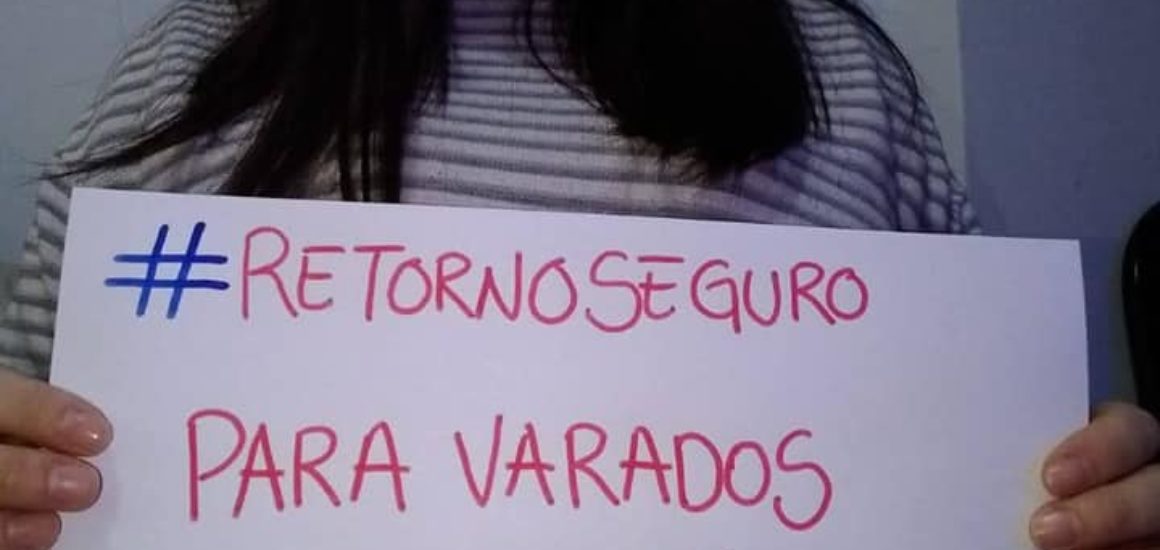 #RETORNOSEGURO
PARA VARADOS